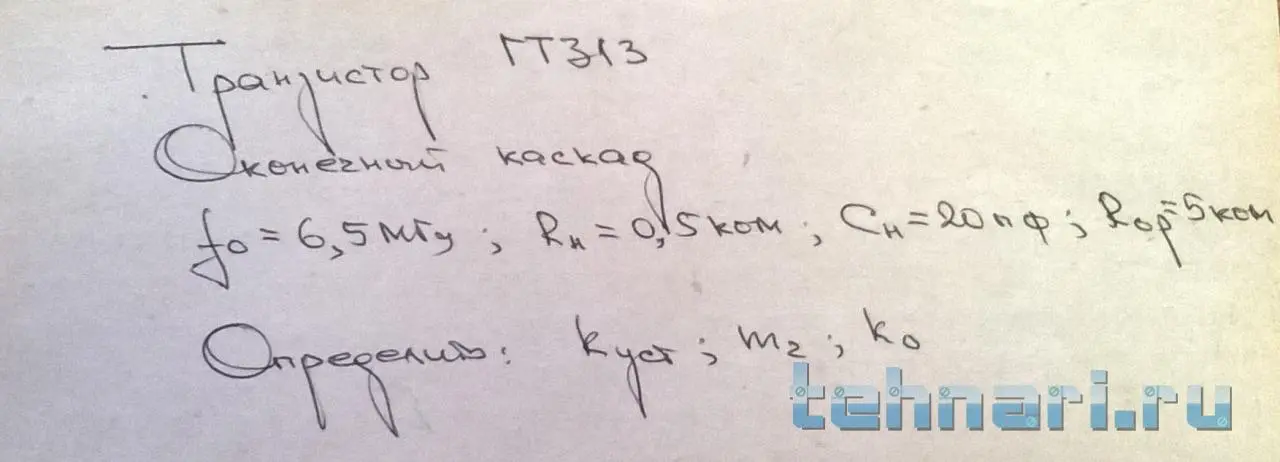 Транзистор ГТ313
Оконечный каскад
f₀ = 6,5 мгц ; Rн = 0,5 ком ; Cн = 20 пф ; Rор = 5 ком
Определить: Kуст ; m₂ ; K₀
tehnari.ru